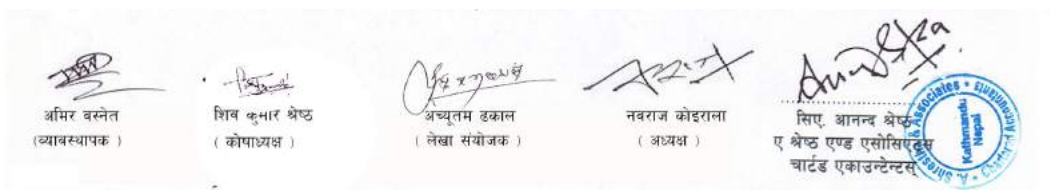 अमिर वस्नेत
(व्यावस्थापक )
शिव कुमार श्रेष्ठ
( कोषाध्यक्ष )
अच्यूतम ढकाल
( लेखा संयोजक )
नवराज कोइराला
( अध्यक्ष )
सिए. आनन्द श्रेष्ठ
ए श्रेष्ठ एण्ड एसोसिएट्स
चार्टड एकाउन्टेन्टस्
A. Shrestha & Associates • Chartered Accountants •
Kathmandu
Nepal